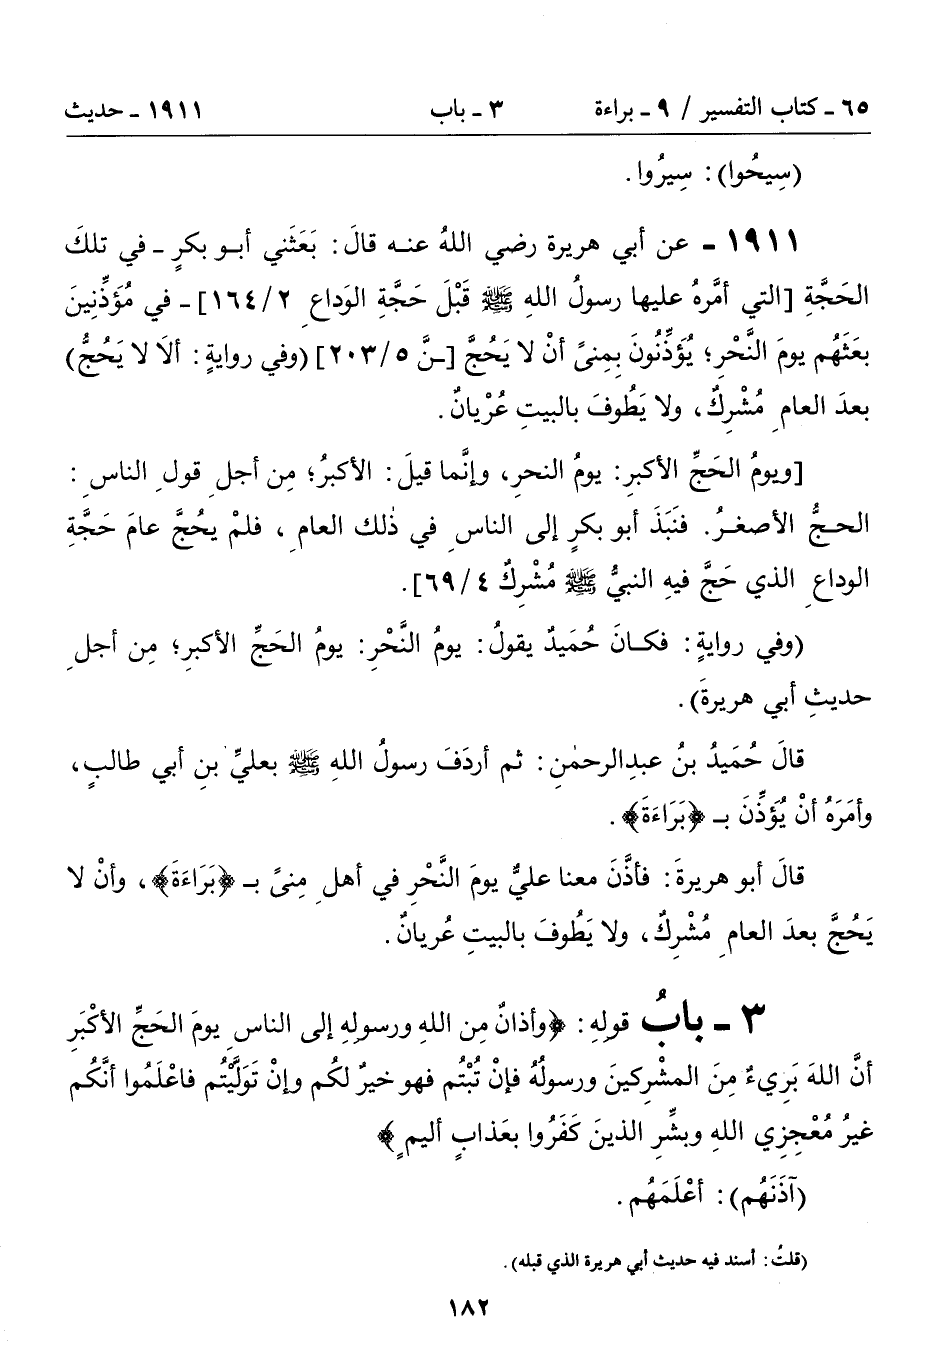 ٦٥ ـ كتاب التفسير / ٩ ـ براءة ٣ ـ باب ١٩١١ ـ حديث
(سِيحُوا): سِيرُوا.
١٩١١ ـ عن أبي هريرة رضي اللهُ عنه قالَ: بَعَثَني أبو بكرٍ ـ في تلكَ
الحَجَّةِ [التي أمَّرهُ عليها رسولُ اللهِ ﷺ قَبْلَ حَجَّةِ الوَداعِ ٢/١٦٤] ـ في مُؤَذِّنِينَ
بعَثَهُم يومَ النَّحْرِ؛ يُؤَذِّنُونَ بِمِنىً أنْ لا يَحُجَّ [ـنَّ ٥/٢٠٣] (وفي روايةٍ: ألَا لا يَحُجُّ)
بعدَ العامِ مُشْرِكٌ، ولا يَطُوفَ بالبيتِ عُرْيانٌ.
[ويومُ الحَجِّ الأكبرِ: يومُ النحرِ، وإنَّما قيلَ: الأكبرُ؛ مِن أجلِ قولِ الناسِ:
الحجُّ الأصغرُ. فنَبَذَ أبو بكرٍ إلى الناسِ في ذٰلك العامِ، فلمْ يحُجَّ عامَ حَجَّةِ
الوداعِ الذي حَجَّ فيهِ النبيُّ ﷺ مُشْرِكٌ ٤/٦٩].
(وفي روايةٍ: فكانَ حُمَيدٌ يقولُ: يومُ النَّحْرِ: يومُ الحَجِّ الأكبرِ؛ مِن أجلِ
حديثِ أبي هريرةَ).
قالَ حُمَيدُ بنُ عبدِالرحمٰنِ: ثم أردَفَ رسولُ اللهِ ﷺ بعليِّ بنِ أبي طالبٍ،
وأمَرَهُ أنْ يُؤَذِّنَ بـ ﴿بَرَاءَةَ﴾.
قالَ أبو هريرةَ: فأذَّنَ معنا عليٌّ يومَ النَّحْرِ في أهلِ مِنىً بـ ﴿بَرَاءَةَ﴾، وأنْ لا
يَحُجَّ بعدَ العامِ مُشْرِكٌ، ولا يَطُوفَ بالبيتِ عُريانٌ.
٣ ـ بابُ قولِهِ: ﴿وأذانٌ مِن اللهِ ورسولِهِ إلى الناسِ يومَ الحَجِّ الأكْبَرِ
أنَّ اللهَ بَرِيءٌ مِنَ المشْرِكينَ ورسولُهُ فإنْ تُبْتُم فهو خيرٌ لكُم وإنْ تَوَلَّيْتُم فاعْلَمُوا أنَّكُم
غيرُ مُعْجِزِي اللهِ وبشِّرِ الذينَ كَفَرُوا بعَذابٍ أليمٍ﴾
(آذَنَهُم): أعْلَمَهُم.
(قلتُ: أسند فيه حديث أبي هريرة الذي قبله).
١٨٢